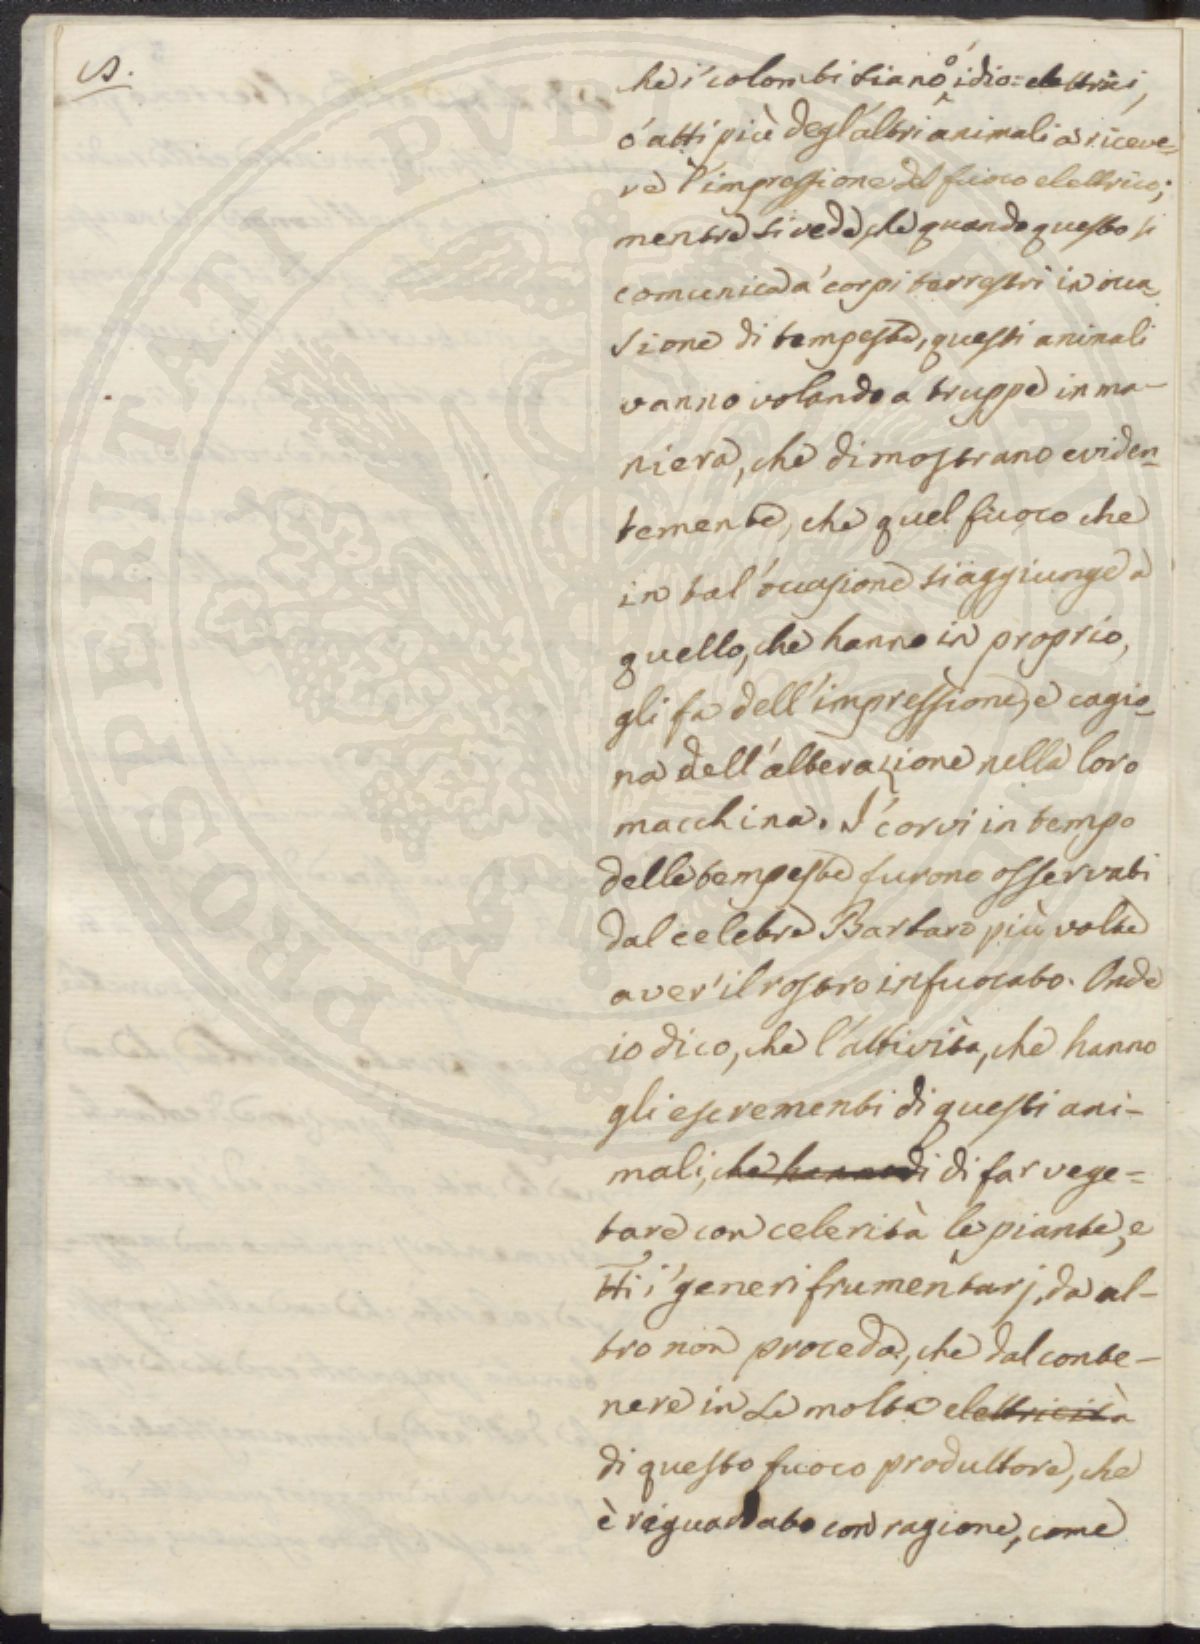 S.
che i' colombi siano ò idio=elettrici,
ó atti più degl'altri animali a riceve=
re l'impressione del fuoco elettrico;
mentre si vede, che quando questo si
comunica a' corpi terrestri in occa=
sione di tempeste, questi animali
vanno volando a truppe in ma-
niera, che dimostrano eviden=
temente, che quel fuoco che
in tal'occasione si aggiunge a
quello, che hanno in proprio,
gli fa dell'impressione, e cagio=
na dell'alterazione nella loro
macchina. I' corvi in tempo
delle tempeste furono osservati
dal celebre Barbaro più volte
aver'il rostro infuocato. Onde
io dico, che l'attività, che hanno
gli escrementi di questi ani-
mali, che hanno di di far vege=
tare con celerità le piante, e
tti i' generi frumentarj, da al-
tro non proceda, che dal conte-
nere in se molta elettricità
di questo fuoco produttore, che
è riguardato con ragione, come
PROSPERITATI PVBLICAE